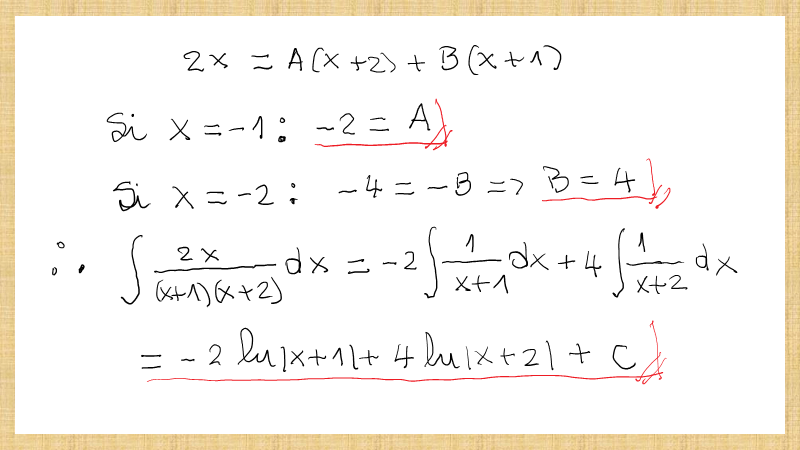 2x = A(x+2) + B(x+1)
Si x = -1 : -2 = A
Si x = -2 : -4 = -B => B = 4
∴ ∫ 2x/((x+1)(x+2)) dx = -2 ∫ 1/(x+1) dx + 4 ∫ 1/(x+2) dx
= -2 ln|x+1| + 4 ln|x+2| + C